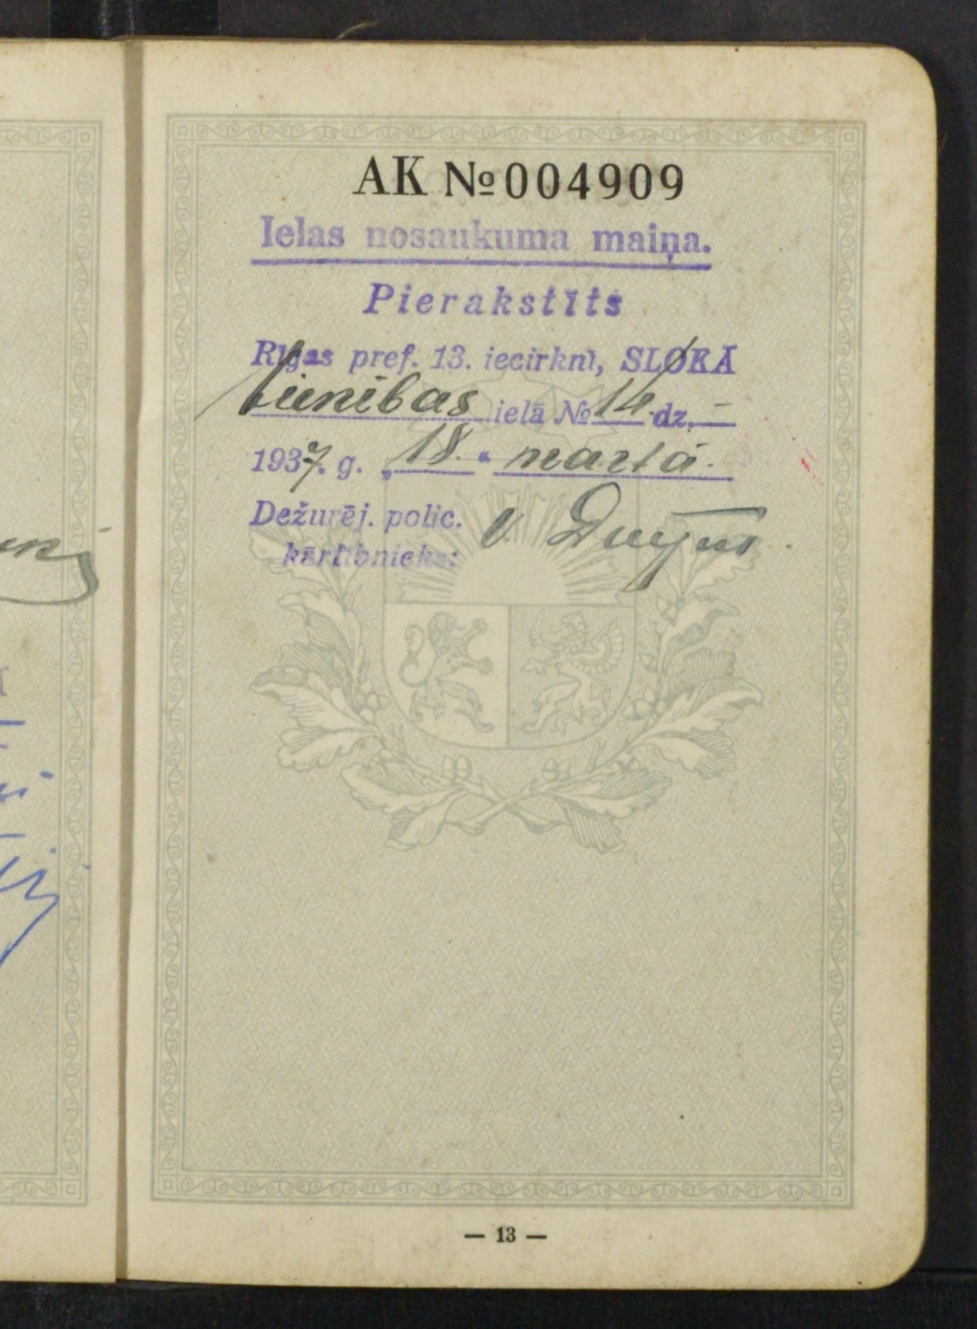 AK № 004909
Ielas nosaukuma maiņa.
Pierakstīts
Rīgas pref. 13. iecirknī, SLOKĀ
Vienības ielā № 14 dz. –
1937. g. „18." martā.
Dežurēj. polic.
kārtībnieks:
— 13 —